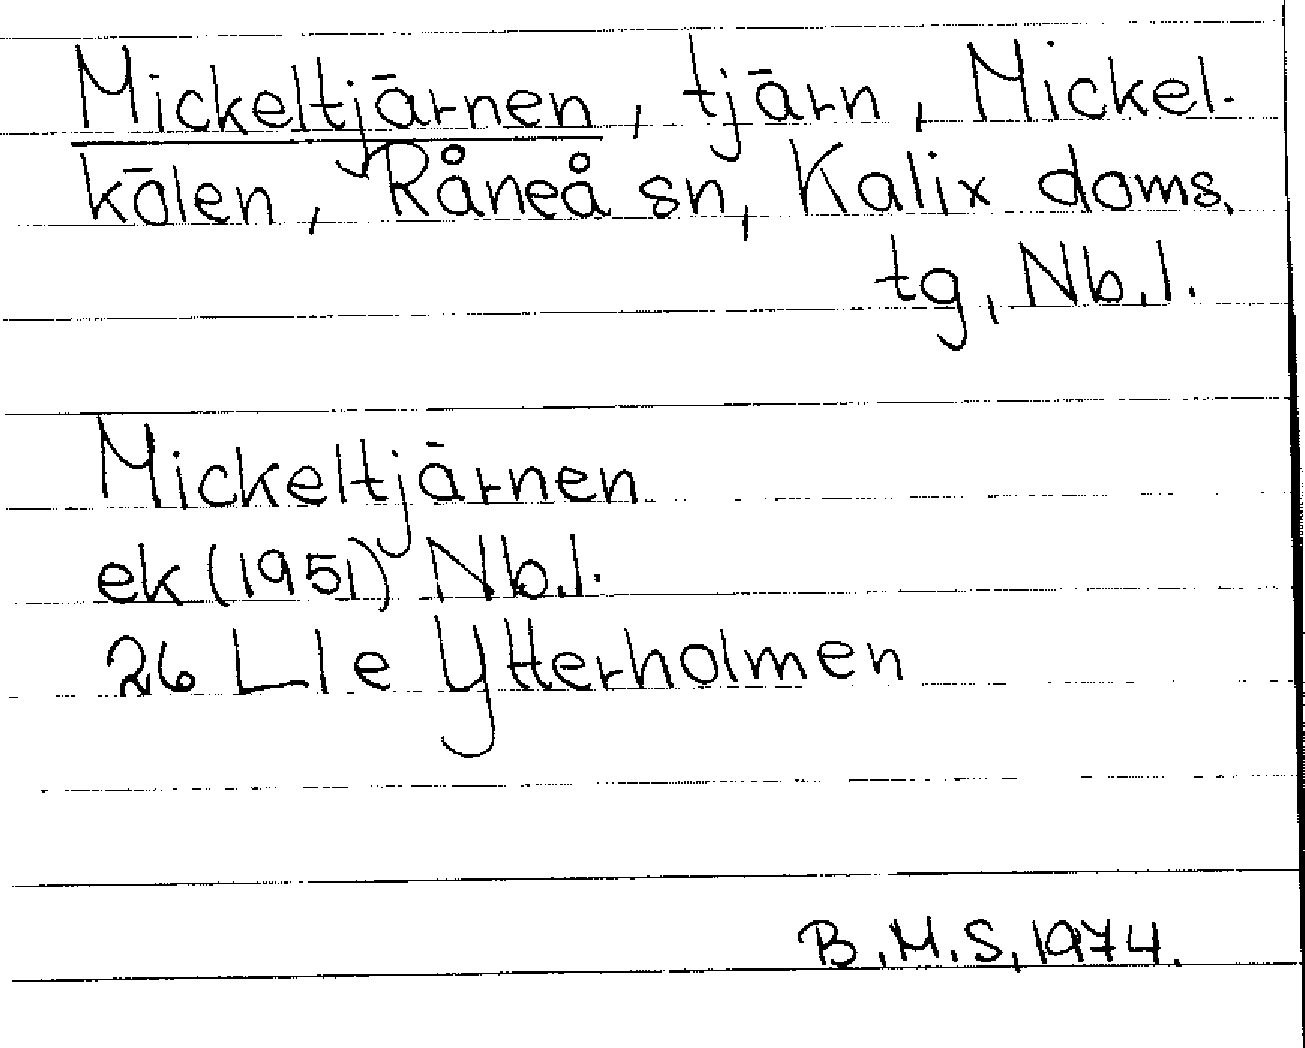 Mickeltjärnen, tjärn, Mickel-
kölen, Råneå sn, Kalix doms.
tg, Nb.l.
Mickeltjärnen
ek (1951) Nb.l.
26 L 1 e Ytterholmen
B.M.S, 1974.